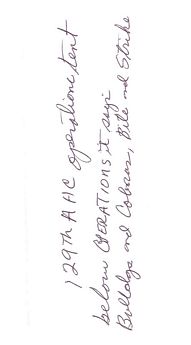 129th AHC operations tent
below OPERATIONS it says
Bulldogs and Cobras, Bite and Strike